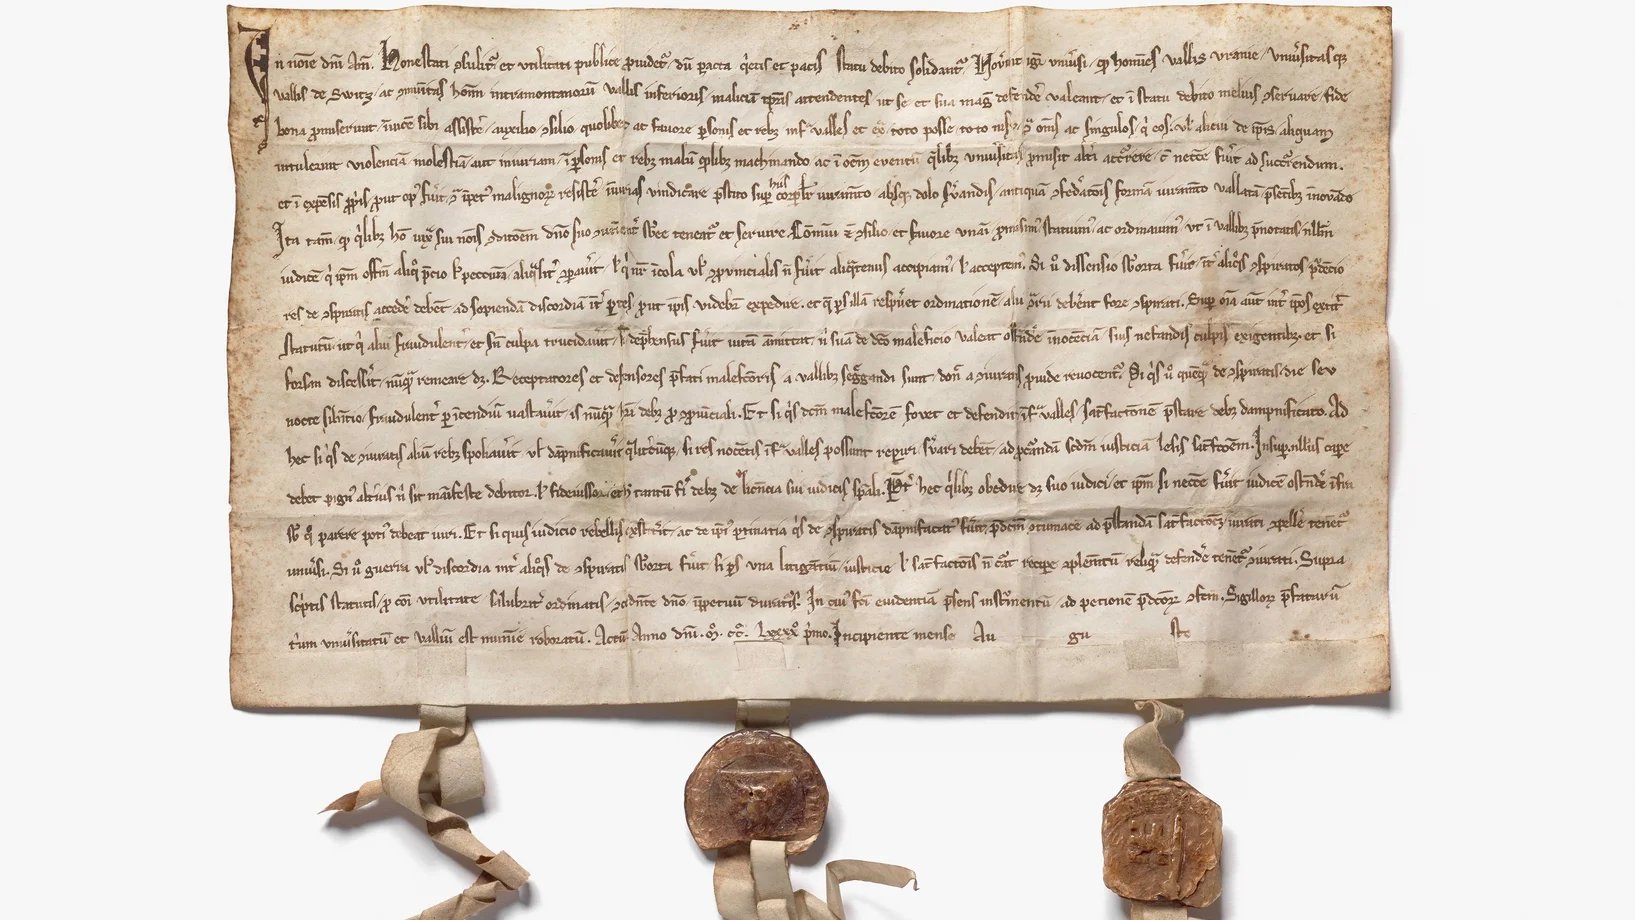 In noīe dnī Am̄. Honestati ꝯsulit᷑ et vtilitati publice ꝓuidet᷑ dū pacta q̄etis et pacis statu debito solidant᷑. Nou̾int igit᷑ vniu̾si, ꝙ homīes vallis vranie, vniu̾sitasqꝫ
vallis de Switz, ac ꝯmunitas hom̄ intramontanorū vallis inferioris, maliciā tp̄ris attendentes, ut se et sua magᷤ defende̾ valeant, et ī statu debito melius ꝯseruare, fide
bona ꝓmiserunt, īuicē sibi assiste̾, auxilio, ꝯsilio, quolibet ac fauore, ꝑsonis et rebꝫ, infᷓ valles et exᷓ, toto posse, toto nisu, ꝯᷓ om̄s ac singulos, q̇ eos, vl̾ alicui de ip̄is, aliquam
intulerint violenciā, molestiā, aut iniuriam, ī ꝑsonis et rebꝫ malū q̄dlibꝫ machinando, ac ī oēm euentū q̄libꝫ vniu̾sitas, ꝓmisit alt̾i accᷣrere, cū necc̄e fuꝰit ad succᷣrendum,
et ī expēsis ꝓp̄is, ꝓut opꝰ fuꝰit, ꝯᷓ īpetꝰ malignorꝫ resiste̾, iniurias vindicare, p̄stito suꝑ hijs corpal̾r iuramēto, absqꝫ dolo s̾uandis, antiquā ꝯfed̾atōis formā iuramēto vallatā, p̄sētibꝫ īnouādo
Ita tam̄, ꝙ q̇libꝫ hō iuxᷓ sui nōis ꝯditōem dn̄o suo ꝯuenient̾ sub̄ee teneat᷑ et seruire. Cōmūi ē ꝯsilio, et fauore vnaī ꝓmisimꝰ, statuimꝰ, ac ordinauimꝰ, vt ī vallibꝫ p̄notatis, nllm̄
iudicē, q̇ ip̄m offm̄ aliqᵒ p̄cio, l̾ peccunia, aliqᷓlit̾ ꝯꝑau̾it, l̾ q̇ nr̄ īcola vl̾ ꝯprouincialis n̄ fu̾it, aliqᷓtenus accipiamꝰ, l̾ acceptemꝰ. Si ů dissensio sub̾orta fu̾it, int̾ aliqᵒs ꝯspiratos, prudēcio
res de ꝯspiratis accede̾ debēt, ad sopiendā discordiā int̾ ꝑtes, ꝓut ip̄is videbit᷑ expedire, et q̄ ꝑs illā respu̾et ordinationē, alii ꝯᷓrii deber̄ent fore ꝯspirati. Suꝑ oīa aūt, int̾ ip̄os extit̾
statutū, ut q̇ aliū fraudulent̾, et sn̄ culpa trucidau̾it, si dep̄hensus fu̾it, uitā āmittat, nisi suā de dc̄o maleficio valeat ostende̾ īnocēciā, suis nefandis culpis exigentibꝫ, et si
forsan discesse̾it, nūqᷓ remeare dꝫ. Receptatores et defensores p̄fati malefc̄oris, a vallibꝫ seg̾gandi sunt, donc̄ a ꝯiuratis ꝓuide reuocent᷑. Si q̇s ů quēqᷓ de ꝯspiratis, die seu
nocte silēntio, fraudulent̾ ꝑ īcendiū uastau̾it, is nūqᷓ hr̄i debꝫ ꝓ ꝯpuīciali. Et si q̇s dcm̄ malefc̄orē fouet et defendit, infᷓ valles, satīsfactionē p̄stare debꝫ dampnificato. Ad
hec si q̇s de ꝯiuratis aliū rebꝫ spoliau̾it, vl̾ dāpnificau̾it qᷓlit̾cūqꝫ, si res nocētis infᷓ valles possunt reperiri, s̾uari debēt, ad ꝓcurandā scd̄m iusticiā lesis satisfc̄ōem. Insuꝑ nullus capẽ
debet pignꝰ alt̾ius, nisi sit manifeste debitor, l̾ fideiussor, et hͨ tantū fieri debꝫ de licencia sui iudicis spēali. Pt̾ hec q̇libꝫ obedire dꝫ suo iudici, et ip̄m si necc̄e fu̾it, iudicē ostende̾ īfra
sub qᵒ parere potiꝰ debeat iuri. Et si quis iudicio rebellis exstit̾it, ac de ip̄iꝰ ꝑtinatia q̇s de ꝯspiratis dāpnificatꝰ fu̾it, p̄dcm̄ ꝯtumacē ad p̄standā satisfactionē, iurati ꝯpelle̾ tenent᷑
uniu̾si. Si ů guerra vl̾ discordia int̾ aliqᵒs de ꝯspiratis sub̾orta fu̾it, si ꝑs una litigātiū, iusticie l̾ satisfactōis n̄ curat recipe̾ ꝯplemētū, reliqᷓ defende̾ tenent᷑ ꝯiurati. Supra
sc̾ptis statutis, ꝓ cōi vtilitate, salubrit̾ ordinatis, ꝯcedēte dn̄o, īppetuū duraturis. In cuiꝰ fc̄i euidentiā p̄sens inst᷑mentū, ad petitionē p̄dcōrꝫ ꝯfectū, Sigillorꝫ p̄fatarū
triū vniu̾sitatū et valliū est munīīe roboratū. Actū Anno dn̄i. M̊. CC̊. LXXXX̊ p̄mo. Incipiente mense Au gu sto